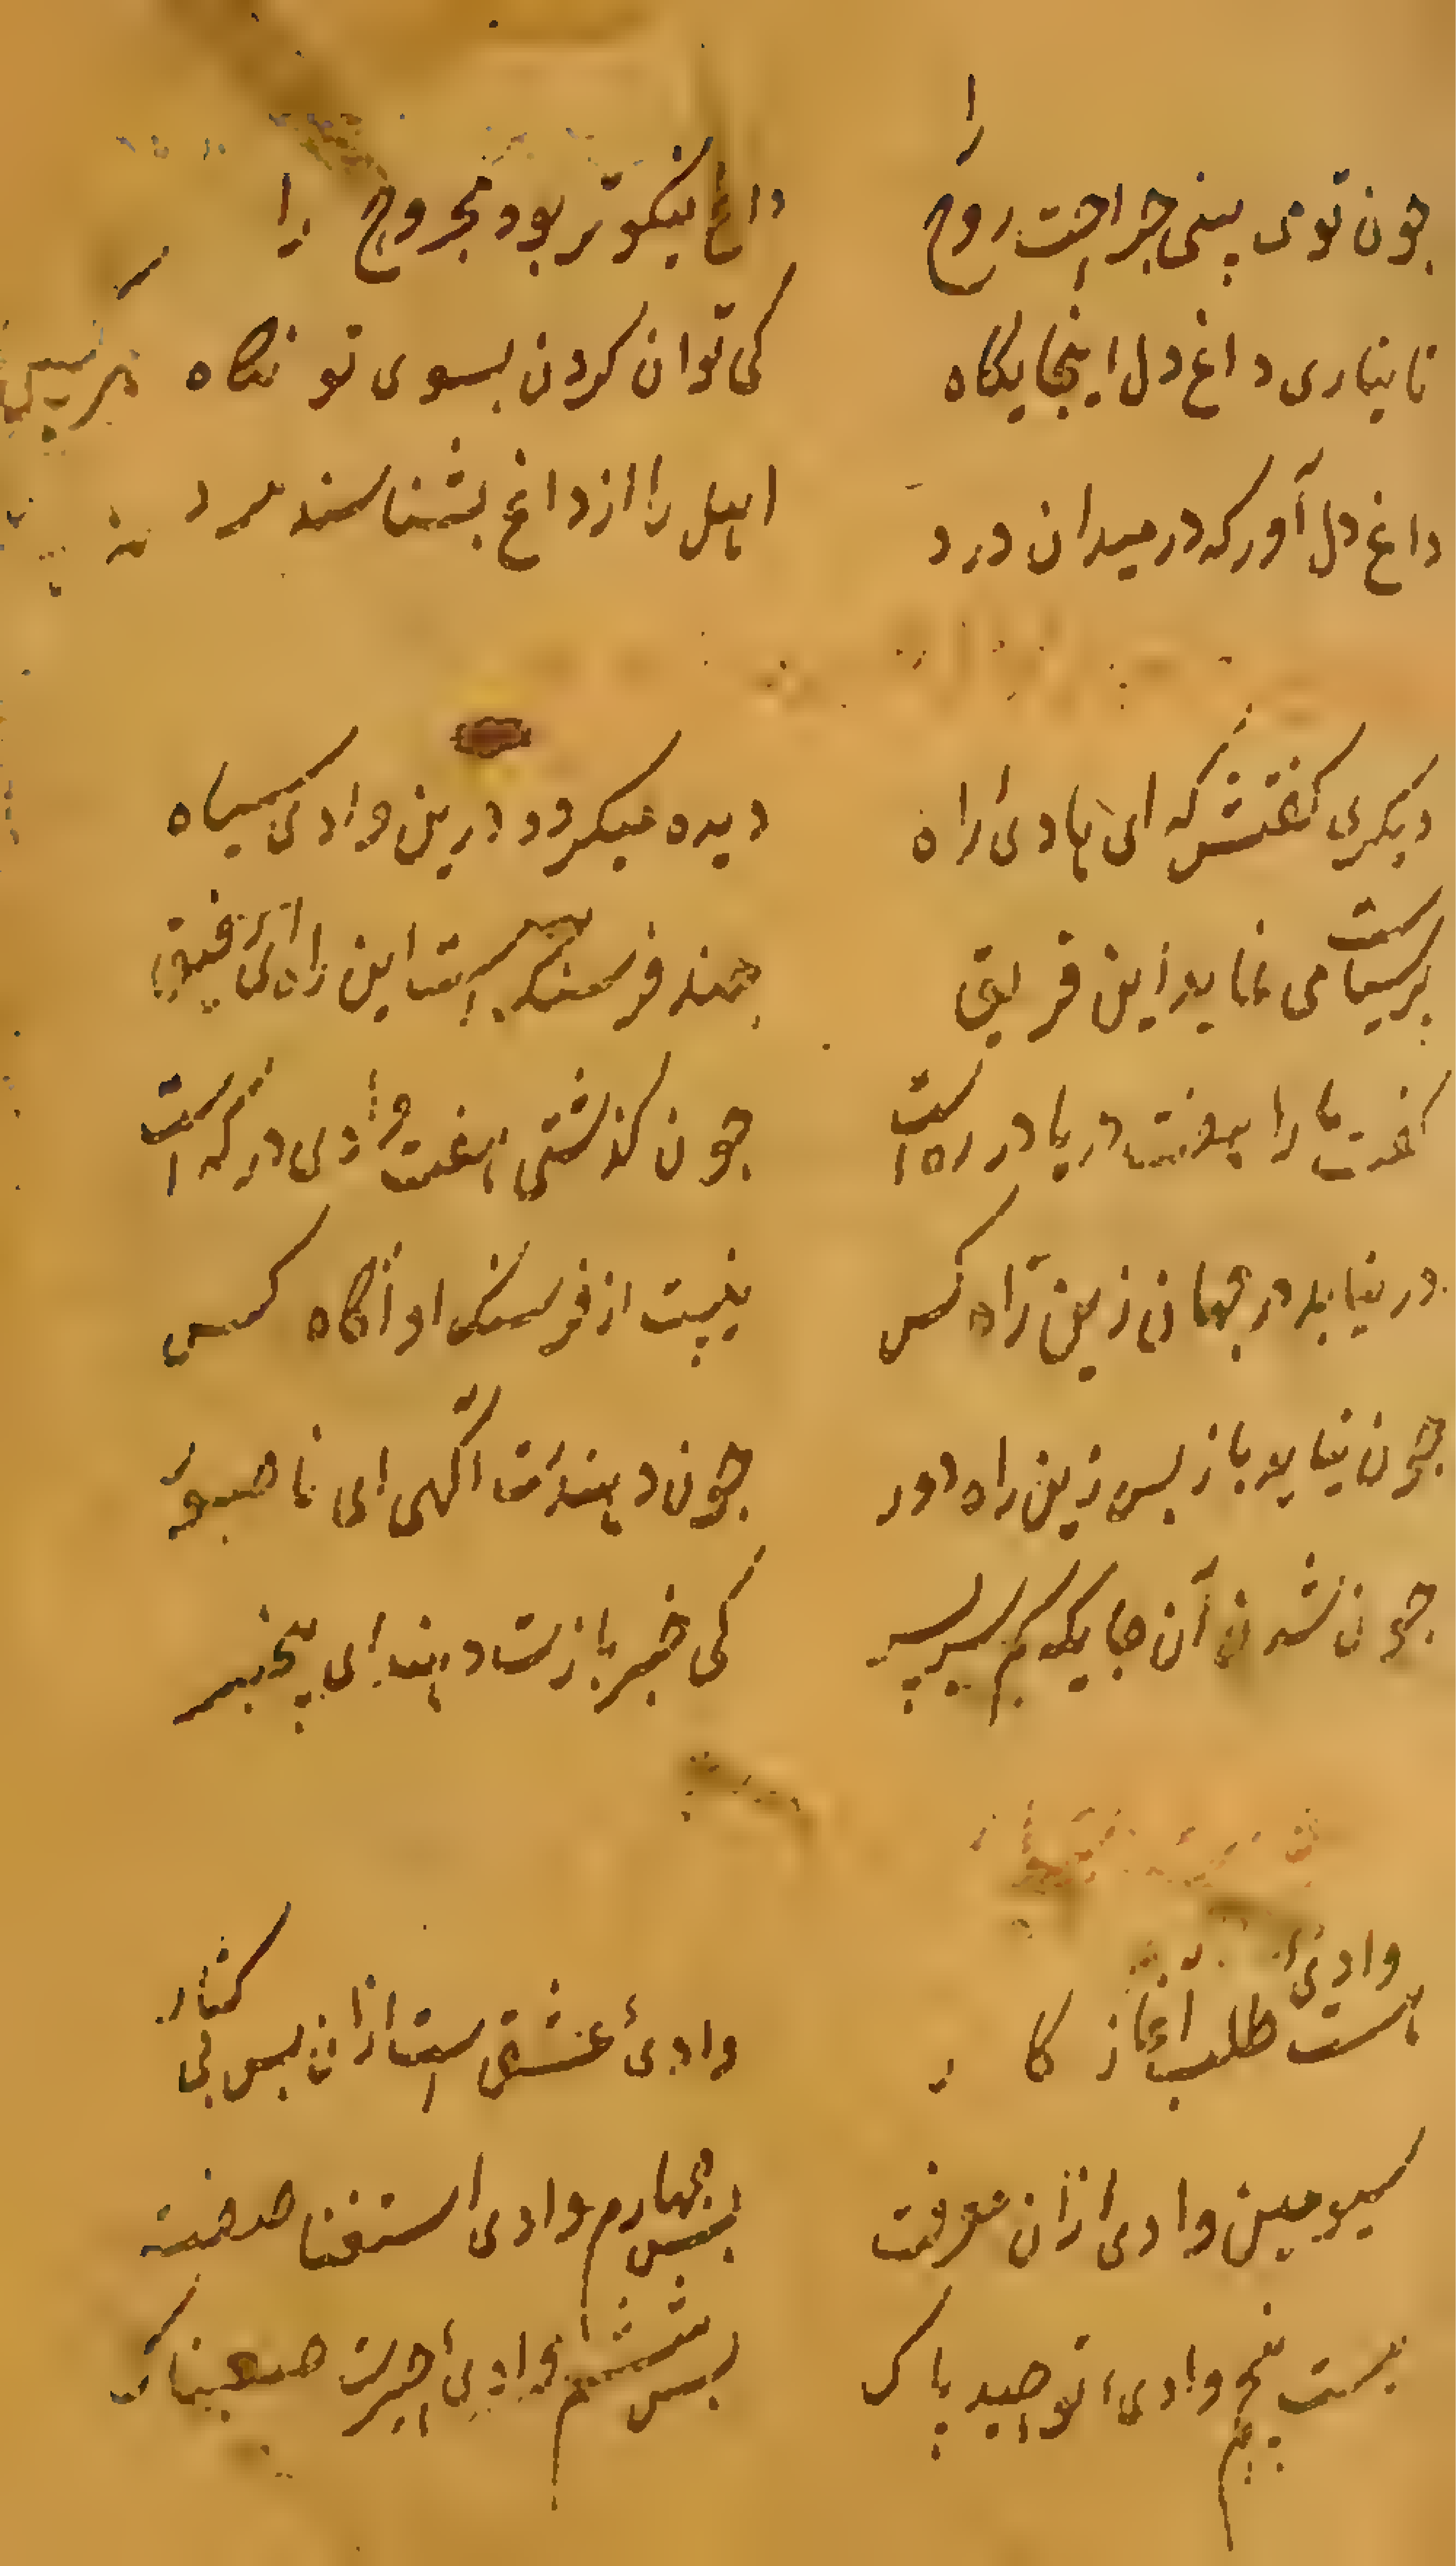 جون توی بینی جراحت روح را
داغ نیکوتر بود مجروح را
تا نیاری داغ دل اینجایکاه
کی توان کردن بسوی تو نکاه
داغ دل آور که در میدان درد
اهل را از داغ بشناسند مرد
دیکری کفتش که ای هادی راه
دیده میکردد درین وادی سیاه
برسیاست می نماید این طریق
جند فرسنکست این راه ای رفیق
کفت ما را هفت دریا در ره است
جون کذشتی هفت وادی درکه است
در نیابد در جهان زین راه کس
نیست از فرسنک او آکاه کس
جون نیاید باز بس زین راه دور
جون دهندت آکهی ای ناصبور
جون شدند آن جایکه کم سر بسر
کی خبر بازت دهند ای بیخبر
هست وادی طلب آغاز کار
وادی عشق است ازان بس بی کنار
سیومین وادی ازان معرفت
بس جهارم وادی استغنا صفت
هست پنجم وادی توحید پاک
بس ششم وادی حیرت صعبناک